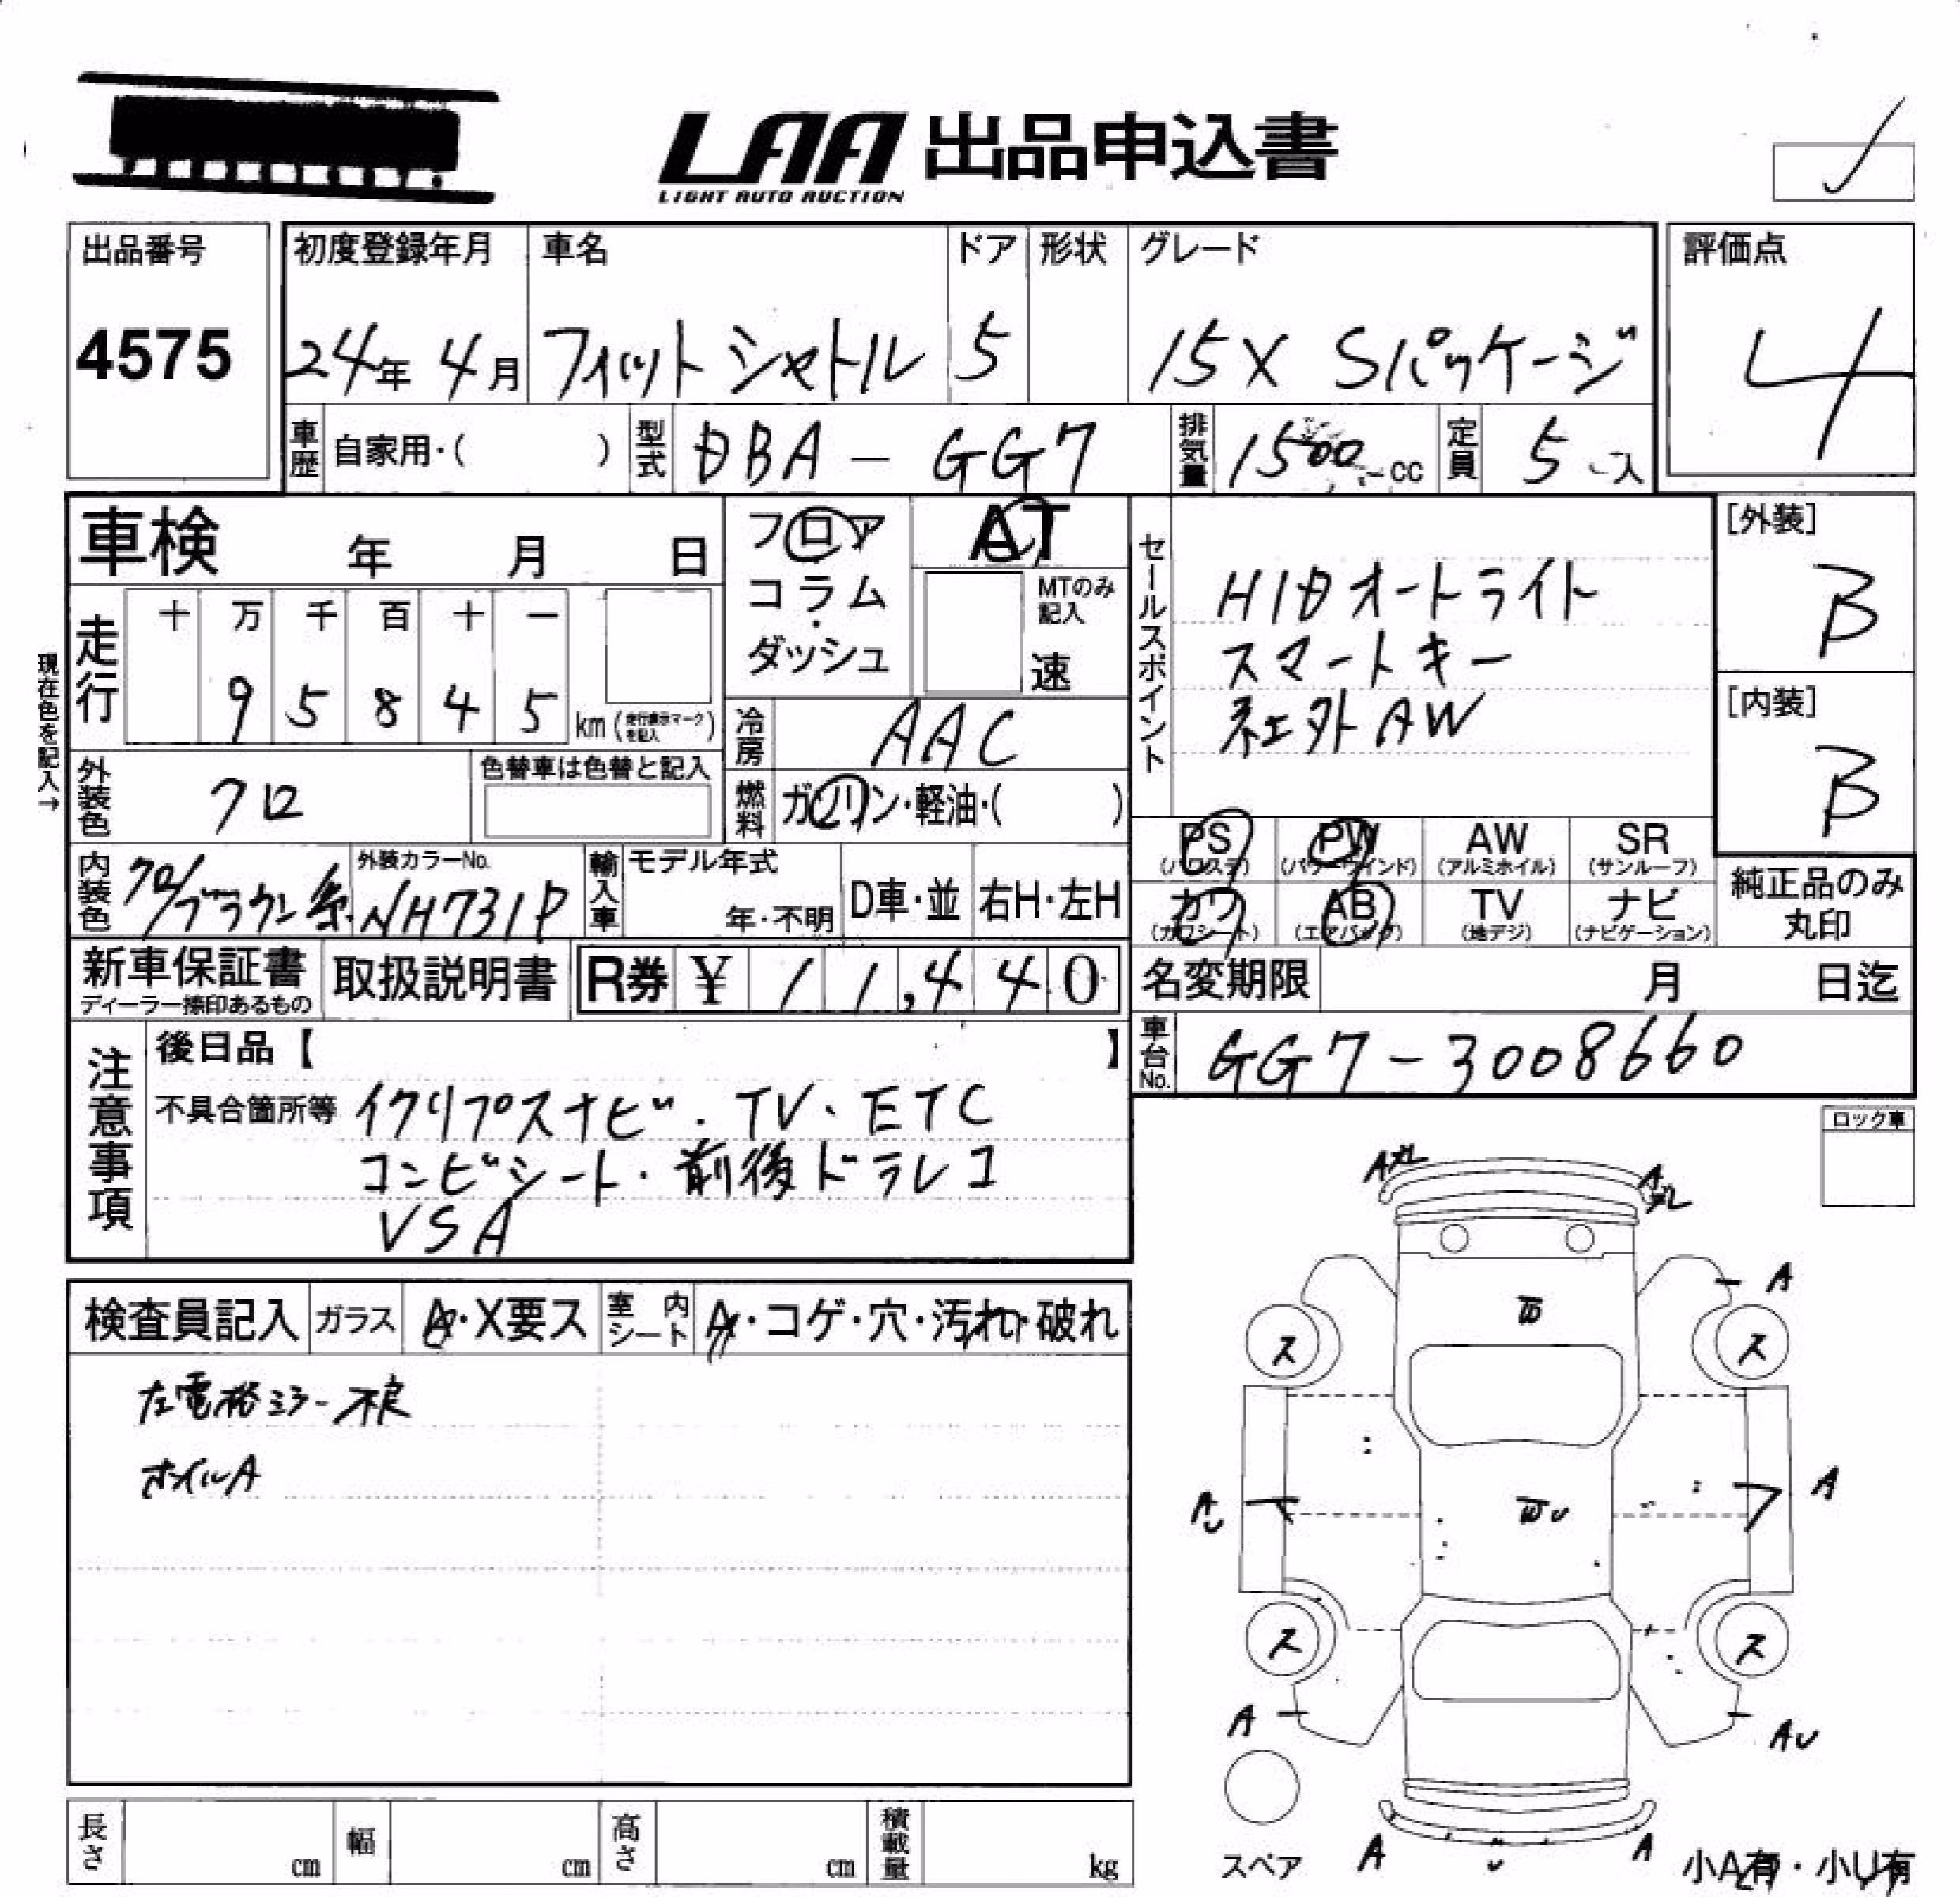 LAA 出品申込書
LIGHT AUTO AUCTION
出品番号
4575
初度登録年月 車名 ドア 形状 グレード
24年 4月 フィットシャトル 5 15X Sパッケージ
評価点
4
車歴 自家用・( ) 型式 DBA-GG7 排気量 1500 cc 定員 5 人
車検 年 月 日
フロア
コラム
・
ダッシュ
AT
MTのみ記入
速
セールスポイント
HIDオートライト
スマートキー
社外AW
[外装]
B
[内装]
B
現在色を記入→
走行
十 万 千 百 十 一
9 5 8 4 5 km (走行表示マークを記入)
冷房 AAC
外装色 クロ 色替車は色替と記入
燃料 ガソリン・軽油・( )
PS AW SR
PW
(パワステ) (パワーウインド) (アルミホイル) (サンルーフ)
カワ AB TV ナビ
(カワシート) (エアバック) (地デジ) (ナビゲーション)
純正品のみ
丸印
内装色 クロ/ブラウン系 外装カラーNo. NH731P
輸入車 モデル年式 年・不明 D車・並 右H・左H
新車保証書 取扱説明書 R券 ¥ 11,440
ディーラー捺印あるもの
名変期限 月 日迄
車台No. GG7-3008660
注意事項
後日品【 】
不具合箇所等 イクリプスナビ・TV・ETC
コンビシート・前後ドラレコ
VSA
ロック車
検査員記入 ガラス A・X要ス 室内シート A・コゲ・穴・汚れ・破れ
左電格ミラー不良
ホイルA
A
A
A
ス ス
A
A
ス ス
A AU
スペア A A 小A有・小U有
長さ cm 幅 cm 高さ cm 積載量 kg